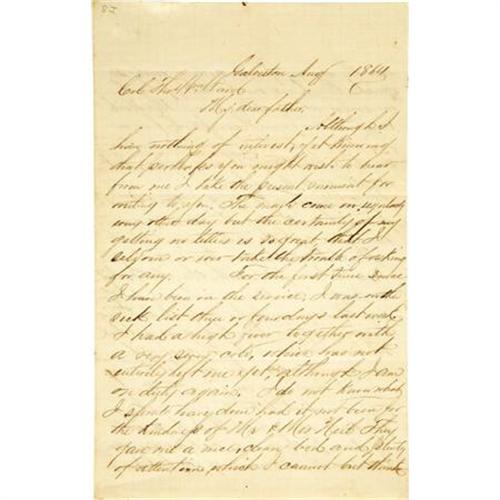 Galveston Aug 1864
Col Thos
My dear father,
Although I
have nothing of interest, yet thinking
that perhaps you might wish to hear
from me I take the present moment for
writing to you. The mail comes in regularly
every other day but the certainty of my
getting no letters is so great, that I
seldom or ever take the trouble of asking
for any. For the first time since
I have been in the service, I was on the
sick list three or four days last week
I had a high fever together with
a very sore, which has not
entirely left me yet, although I am
on duty again. I do not know what
I should have done had it not been for
the kindness of Mr & Mrs They
gave me a nice, clean bed and plenty
of attention, which I cannot but think